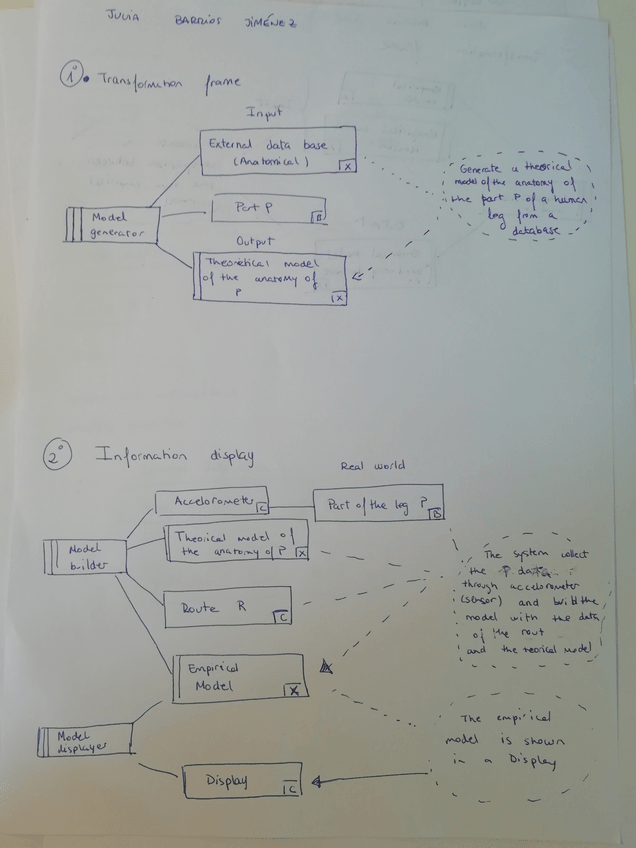 JULIA BARRIOS JIMÉNEZ
1º. Transformation frame
Input
External data base
(Anatomical)
X
Part P
B
Model
generator
Output
Theoretical model
of the anatomy of
P
X
Generate a theorical
model of the anatomy of
the part P of a human
leg from a
database
2º Information display
Real world
Accelorometer
C
Part of the leg P
B
Model
builder
Theorical model of
the anatomy of P
X
Route R
C
Empirical
Model
X
The system collect
the P data
through accelorometer
(sensor) and build the
model with the data
of the rout
and the teorical model
Model
displayer
Display
C
The empirical
model is shown
in a Display